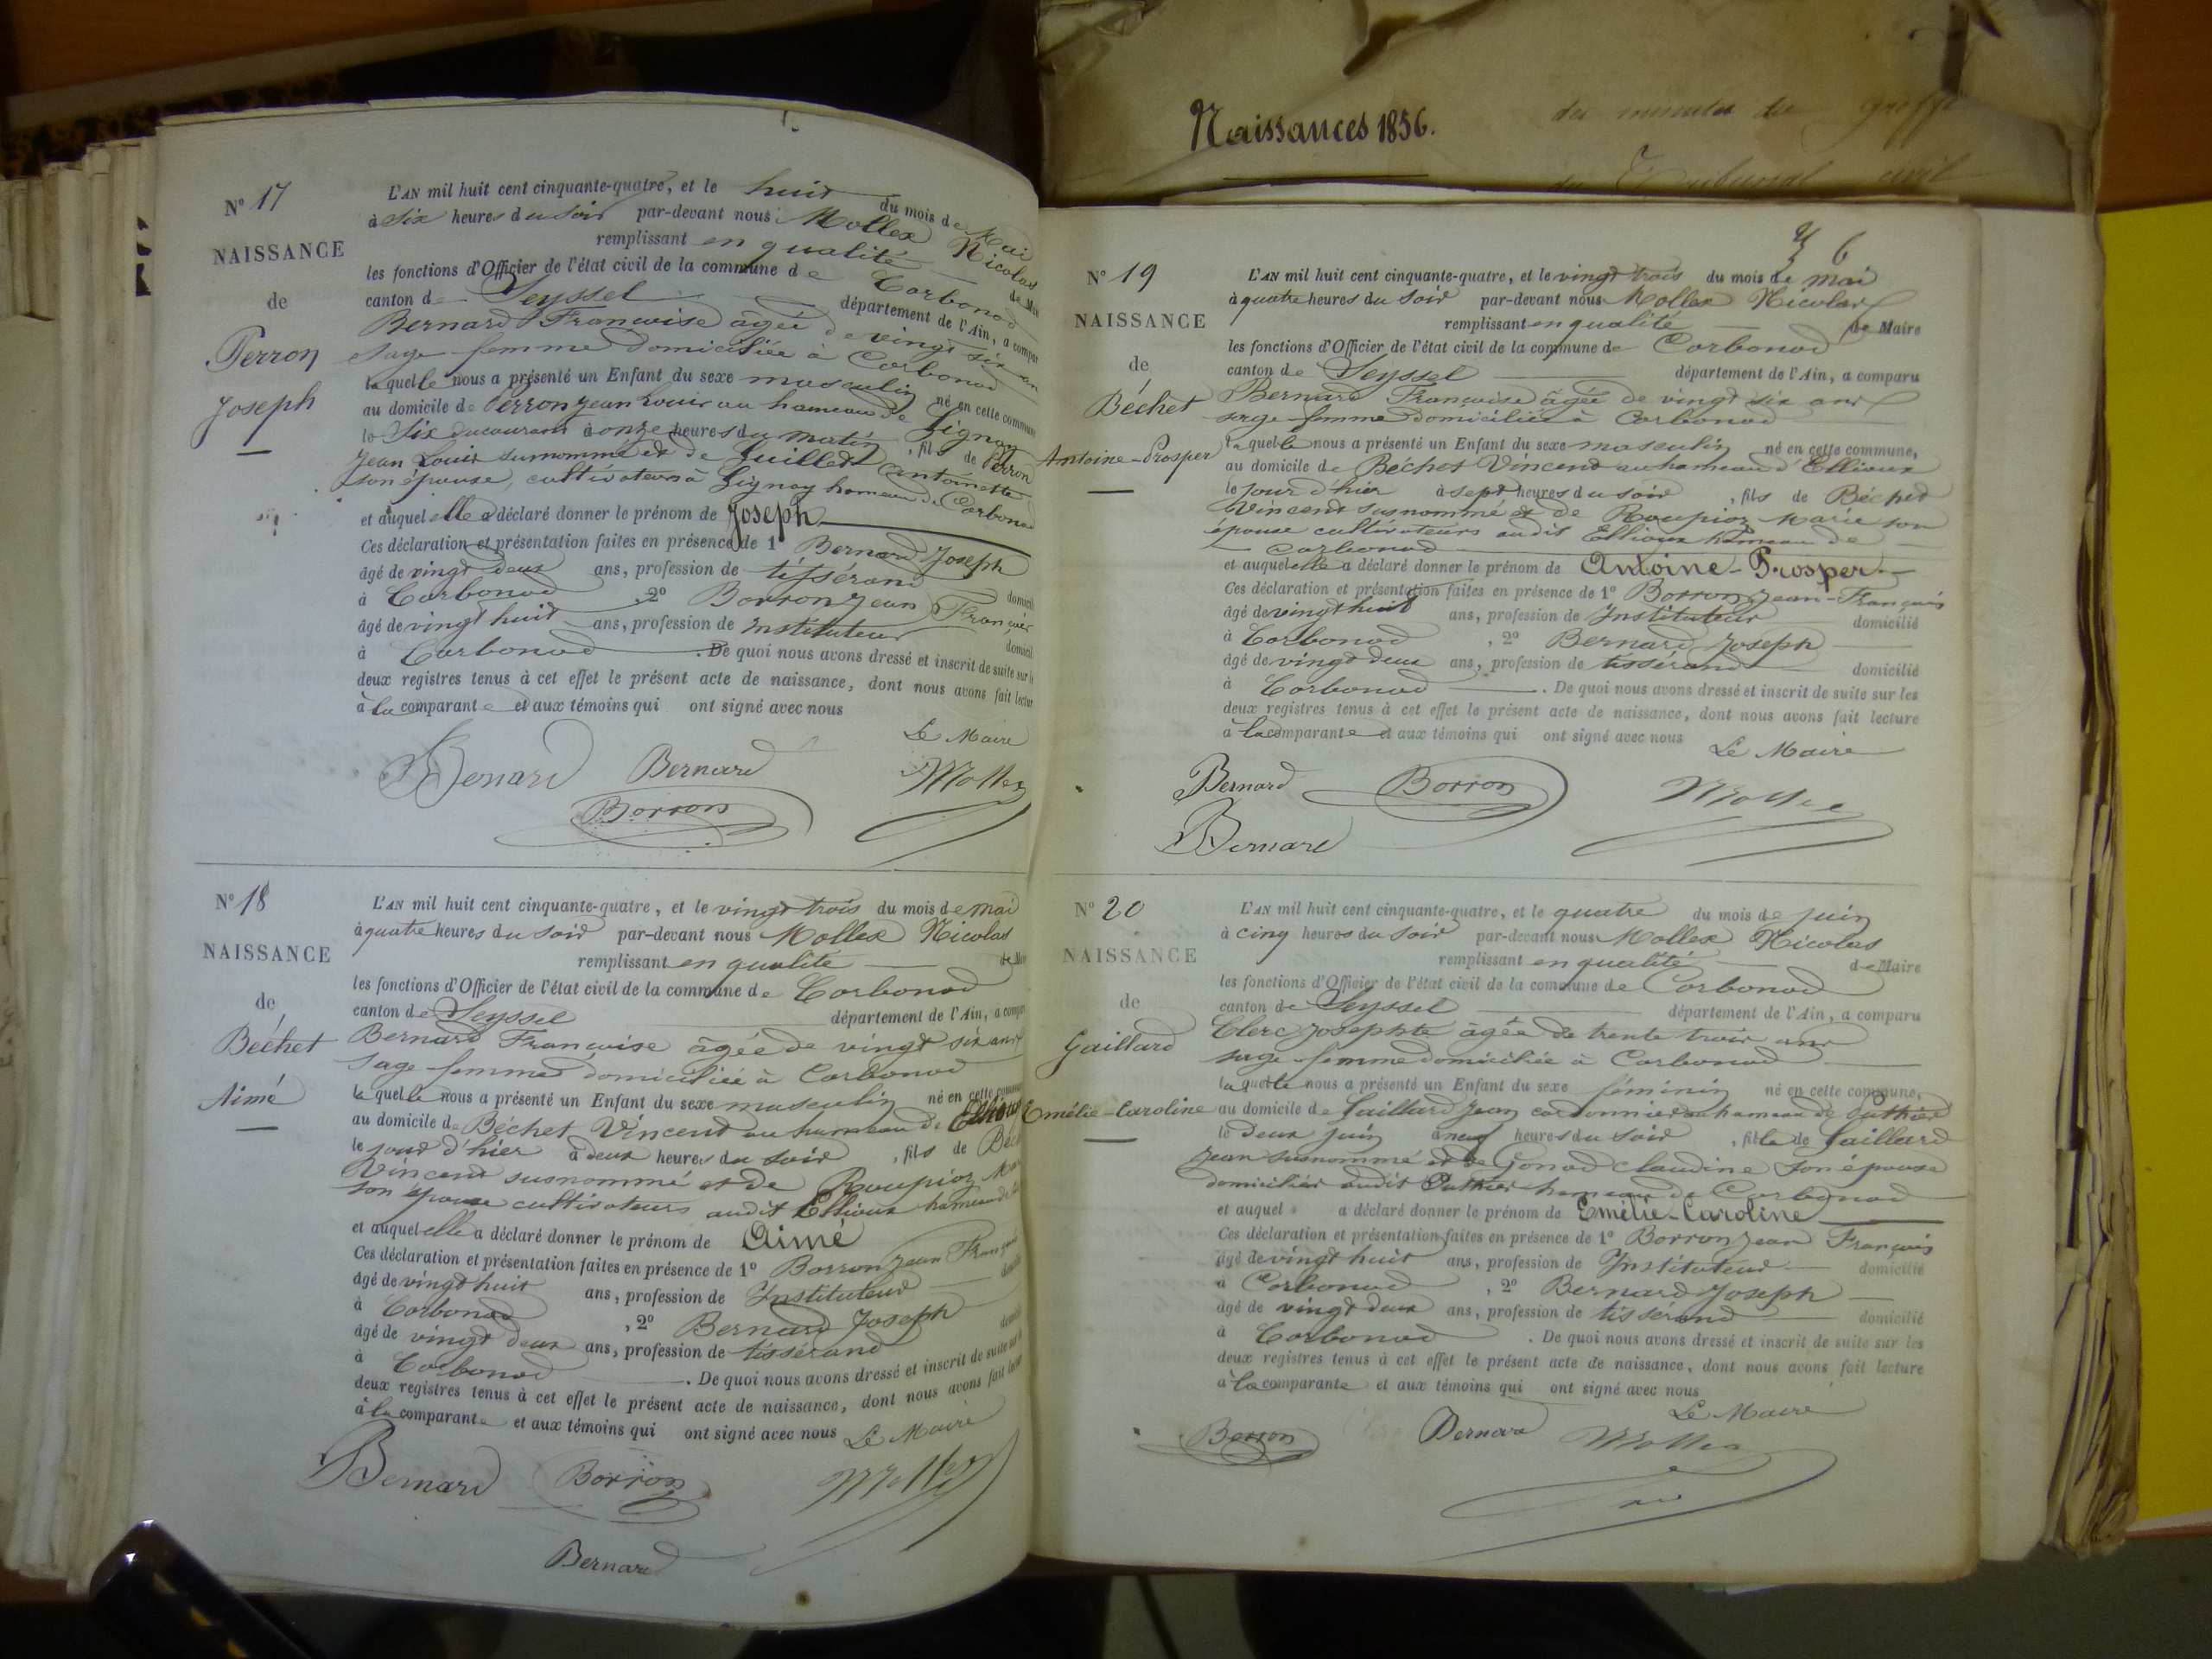 N° 17
NAISSANCE
de
Perron
Joseph
L'AN mil huit cent cinquante-quatre, et le huit du mois de Mai
à six heures du soir par-devant nous Mollex Nicolas
remplissant en qualité de Maire
les fonctions d'Officier de l'état civil de la commune de Corbonod
canton de Seyssel département de l'Ain, a comparu
Bernard Françoise âgée de vingt six ans
sage femme domiciliée à Corbonod
laquelle nous a présenté un Enfant du sexe masculin né en cette commune
au domicile de Perron Jean Louis au hameau de Gignay
le Six du courant à onze heures du matin, fils de Perron
Jean Louis surnommé et de Guillet Antoinette
son épouse, cultivateurs à Gignay hameau de Corbonod
et auquel elle a déclaré donner le prénom de Joseph
Ces déclaration et présentation faites en présence de 1° Bernard Joseph
âgé de vingt deux ans, profession de tissérand domicil
à Corbonod, 2° Borron Jean François
âgé de vingt huit ans, profession de Instituteur domicil
à Corbonod. De quoi nous avons dressé et inscrit de suite sur les
deux registres tenus à cet effet le présent acte de naissance, dont nous avons fait lecture
à la comparante et aux témoins qui ont signé avec nous
Le Maire
Bernard Bernard Mollex
Borron
N° 18
NAISSANCE
de
Béchet
Aimé
L'AN mil huit cent cinquante-quatre, et le vingt trois du mois de mai
à quatre heures du soir par-devant nous Mollex Nicolas
remplissant en qualité de Maire
les fonctions d'Officier de l'état civil de la commune de Corbonod
canton de Seyssel département de l'Ain, a comparu
Bernard Françoise âgée de vingt six ans
sage femme domiciliée à Corbonod
laquelle nous a présenté un Enfant du sexe masculin né en cette commune
au domicile de Béchet Vincent au hameau de
le jour d'hier à deux heures du soir, fils de Béchet
Vincent susnommé et de Roupioz Marie
son épouse cultivateurs audit Ellioux hameau de
et auquel elle a déclaré donner le prénom de Aimé
Ces déclaration et présentation faites en présence de 1° Borron Jean François
âgé de vingt huit ans, profession de Instituteur domicilié
à Corbonod, 2° Bernard Joseph
âgé de vingt deux ans, profession de tissérand domicilié
à Corbonod. De quoi nous avons dressé et inscrit de suite sur les
deux registres tenus à cet effet le présent acte de naissance, dont nous avons fait lecture
à la comparante et aux témoins qui ont signé avec nous Le Maire
Bernard Borron Mollex
Bernard
Naissances 1856.
des minutes du greffe
du Tribunal civil
6
N° 19
NAISSANCE
de
Béchet
Antoine-Prosper
L'AN mil huit cent cinquante-quatre, et le vingt trois du mois de mai
à quatre heures du soir par-devant nous Mollex Nicolas
remplissant en qualité de Maire
les fonctions d'Officier de l'état civil de la commune de Corbonod
canton de Seyssel département de l'Ain, a comparu
Bernard Françoise âgée de vingt six ans
sage femme domiciliée à Corbonod
laquelle nous a présenté un Enfant du sexe masculin né en cette commune,
au domicile de Béchet Vincent au hameau d'Ellioux
le jour d'hier à sept heures du soir, fils de Béchet
Vincent susnommé et de Roupioz Marie son
épouse cultivateurs audit Ellioux hameau de
Corbonod
et auquel elle a déclaré donner le prénom de Antoine-Prosper
Ces déclaration et présentation faites en présence de 1° Borron Jean-François
âgé de vingt huit ans, profession de Instituteur domicilié
à Corbonod, 2° Bernard Joseph
âgé de vingt deux ans, profession de tissérand domicilié
à Corbonod. De quoi nous avons dressé et inscrit de suite sur les
deux registres tenus à cet effet le présent acte de naissance, dont nous avons fait lecture
à la comparante et aux témoins qui ont signé avec nous Le Maire
Bernard Borron Mollex
Bernard
N° 20
NAISSANCE
de
Gaillard
Emélie-Caroline
L'AN mil huit cent cinquante-quatre, et le quatre du mois de juin
à cinq heures du soir par-devant nous Mollex Nicolas
remplissant en qualité de Maire
les fonctions d'Officier de l'état civil de la commune de Corbonod
canton de Seyssel département de l'Ain, a comparu
Clerc Josephte âgée de trente trois ans
sage-femme domiciliée à Corbonod
laquelle nous a présenté un Enfant du sexe féminin né en cette commune,
au domicile de Gaillard Jean cordonnier au hameau de Puthier
le deux juin à neuf heures du soir, fille de Gaillard
Jean susnommé et de Gonod Claudine son épouse
domiciliés audit Puthier hameau de Corbonod
et auquel a déclaré donner le prénom de Emélie-Caroline
Ces déclaration et présentation faites en présence de 1° Borron Jean François
âgé de vingt huit ans, profession de Instituteur domicilié
à Corbonod, 2° Bernard Joseph
âgé de vingt deux ans, profession de tissérand domicilié
à Corbonod. De quoi nous avons dressé et inscrit de suite sur les
deux registres tenus à cet effet le présent acte de naissance, dont nous avons fait lecture
à la comparante et aux témoins qui ont signé avec nous
Le Maire
Borron Bernard Mollex